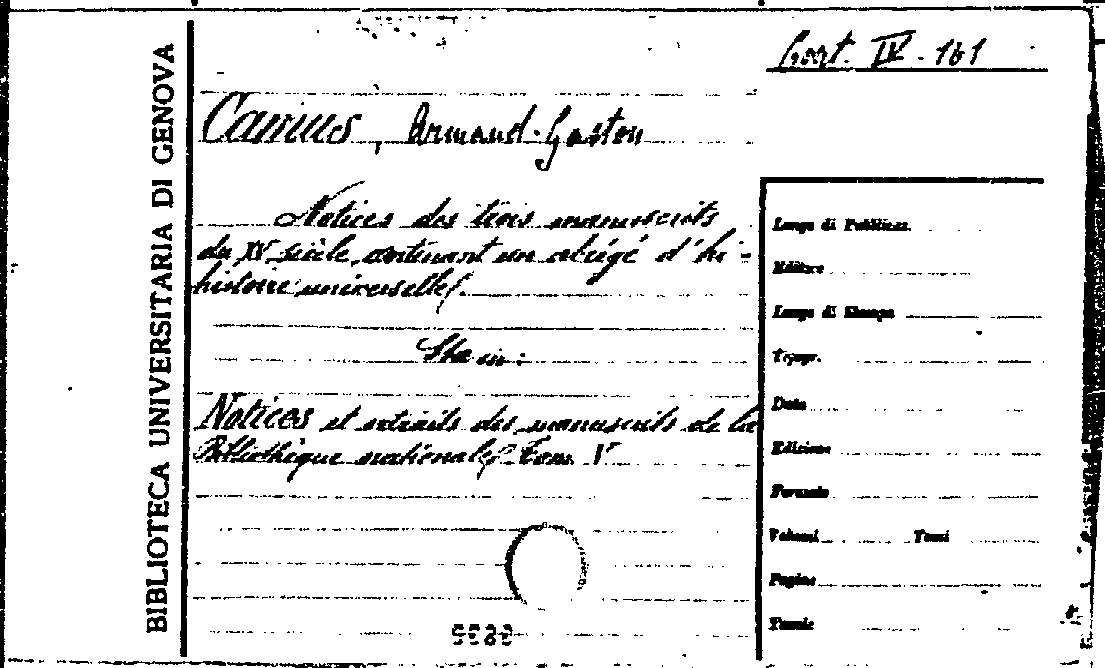 BIBLIOTECA UNIVERSITARIA DI GENOVA
IV. 161
Camus, Armand-Gaston
Notices des trois manuscrits
du XV siècle, contenant un abrégé d'hi-
histoire universelle.
Sta in:
Notices et extraits des manuscrits de la
Bibliothèque nationale. Tom. V
Luogo di Pubblicaz.
Editore
Luogo di Stampa
Tipogr.
Data
Edizione
Formato
Volumi Tomi
Pagine
Tavole